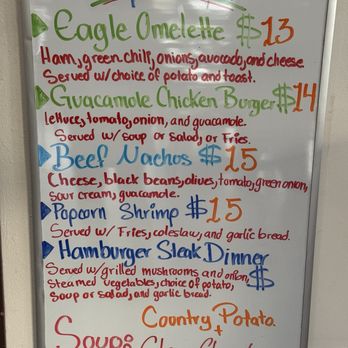 Eagle Omelette $13
Ham, green chili, onions, avocado, and cheese.
Served w/choice of potato and toast.
Guacamole Chicken Burger $14
lettuce, tomato, onion, and guacamole.
Served w/ soup or salad, or Fries.
Beef Nachos $15
Cheese, black beans, olives, tomato, green onion,
sour cream, guacamole.
Popcorn Shrimp $15
Served w/ Fries, coleslaw, and garlic bread.
Hamburger Steak Dinner
Served w/grilled mushrooms and onion, $
steamed vegetables, choice of potato,
soup or salad, and garlic bread.
Country Potato
Soup: